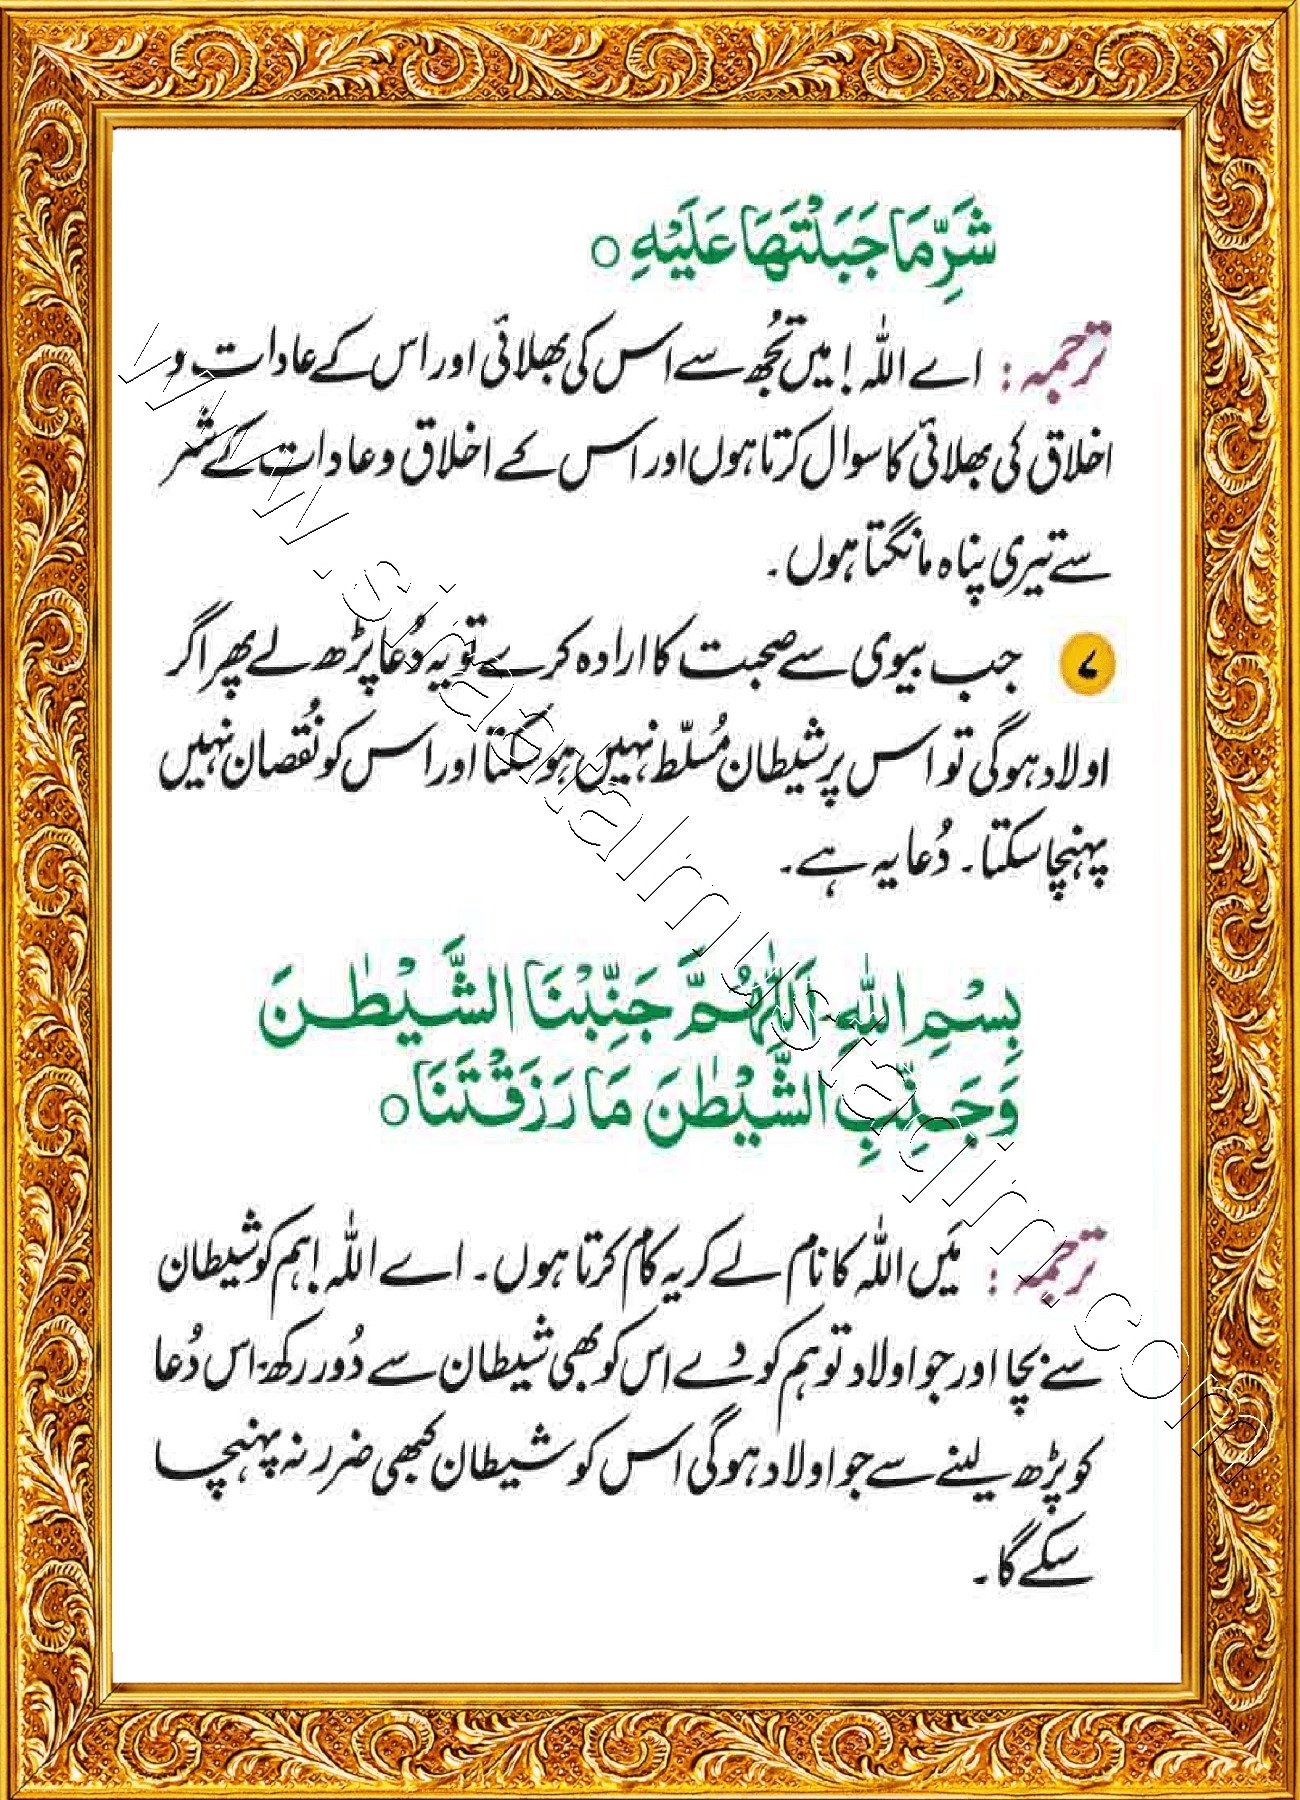 شَرِّ مَا جَبَلْتَهَا عَلَيْهِ ○
ترجمہ : اے اللہ! میں تجُھ سے اس کی بھلائی اور اس کے عادات و
اخلاق کی بھلائی کا سوال کرتا ہوں اور اس کے اخلاق و عادات کے شر
سے تیری پناہ مانگتا ہوں۔
۷ جب بیوی سے صحبت کا ارادہ کرے تو یہ دُعا پڑھ لے پھر اگر
اولاد ہوگی تو اس پر شیطان مُسلّط نہیں ہوسکتا اور اس کو نُقصان نہیں
پہنچا سکتا۔ دُعا یہ ہے۔
بِسْمِ اللّٰهِ اَللّٰهُمَّ جَنِّبْنَا الشَّيْطٰنَ
وَجَنِّبِ الشَّيْطٰنَ مَا رَزَقْتَنَا ○
ترجمہ : مَیں اللہ کا نام لے کر یہ کام کرتا ہوں۔ اے اللہ! ہم کو شیطان
سے بچا اور جو اولاد تو ہم کو دے اس کو بھی شیطان سے دُور رکھ۔ اس دُعا
کو پڑھ لینے سے جو اولاد ہوگی اس کو شیطان کبھی ضرر نہ پہنچا
سکے گا۔
www.siratalmustaqim.com